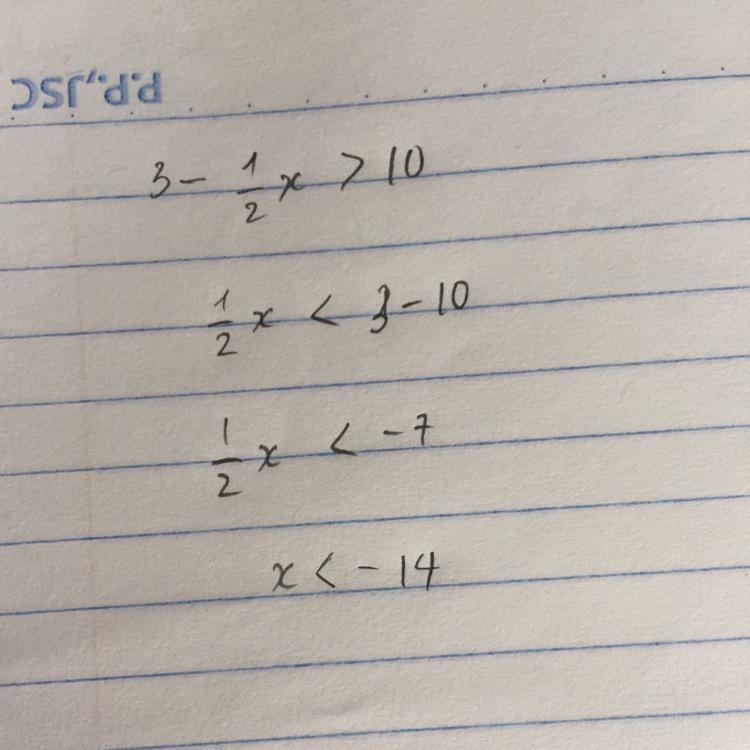 P.P.,JSC
3 - 1/2 x > 10
1/2 x < 3 - 10
1/2 x < -7
x < -14